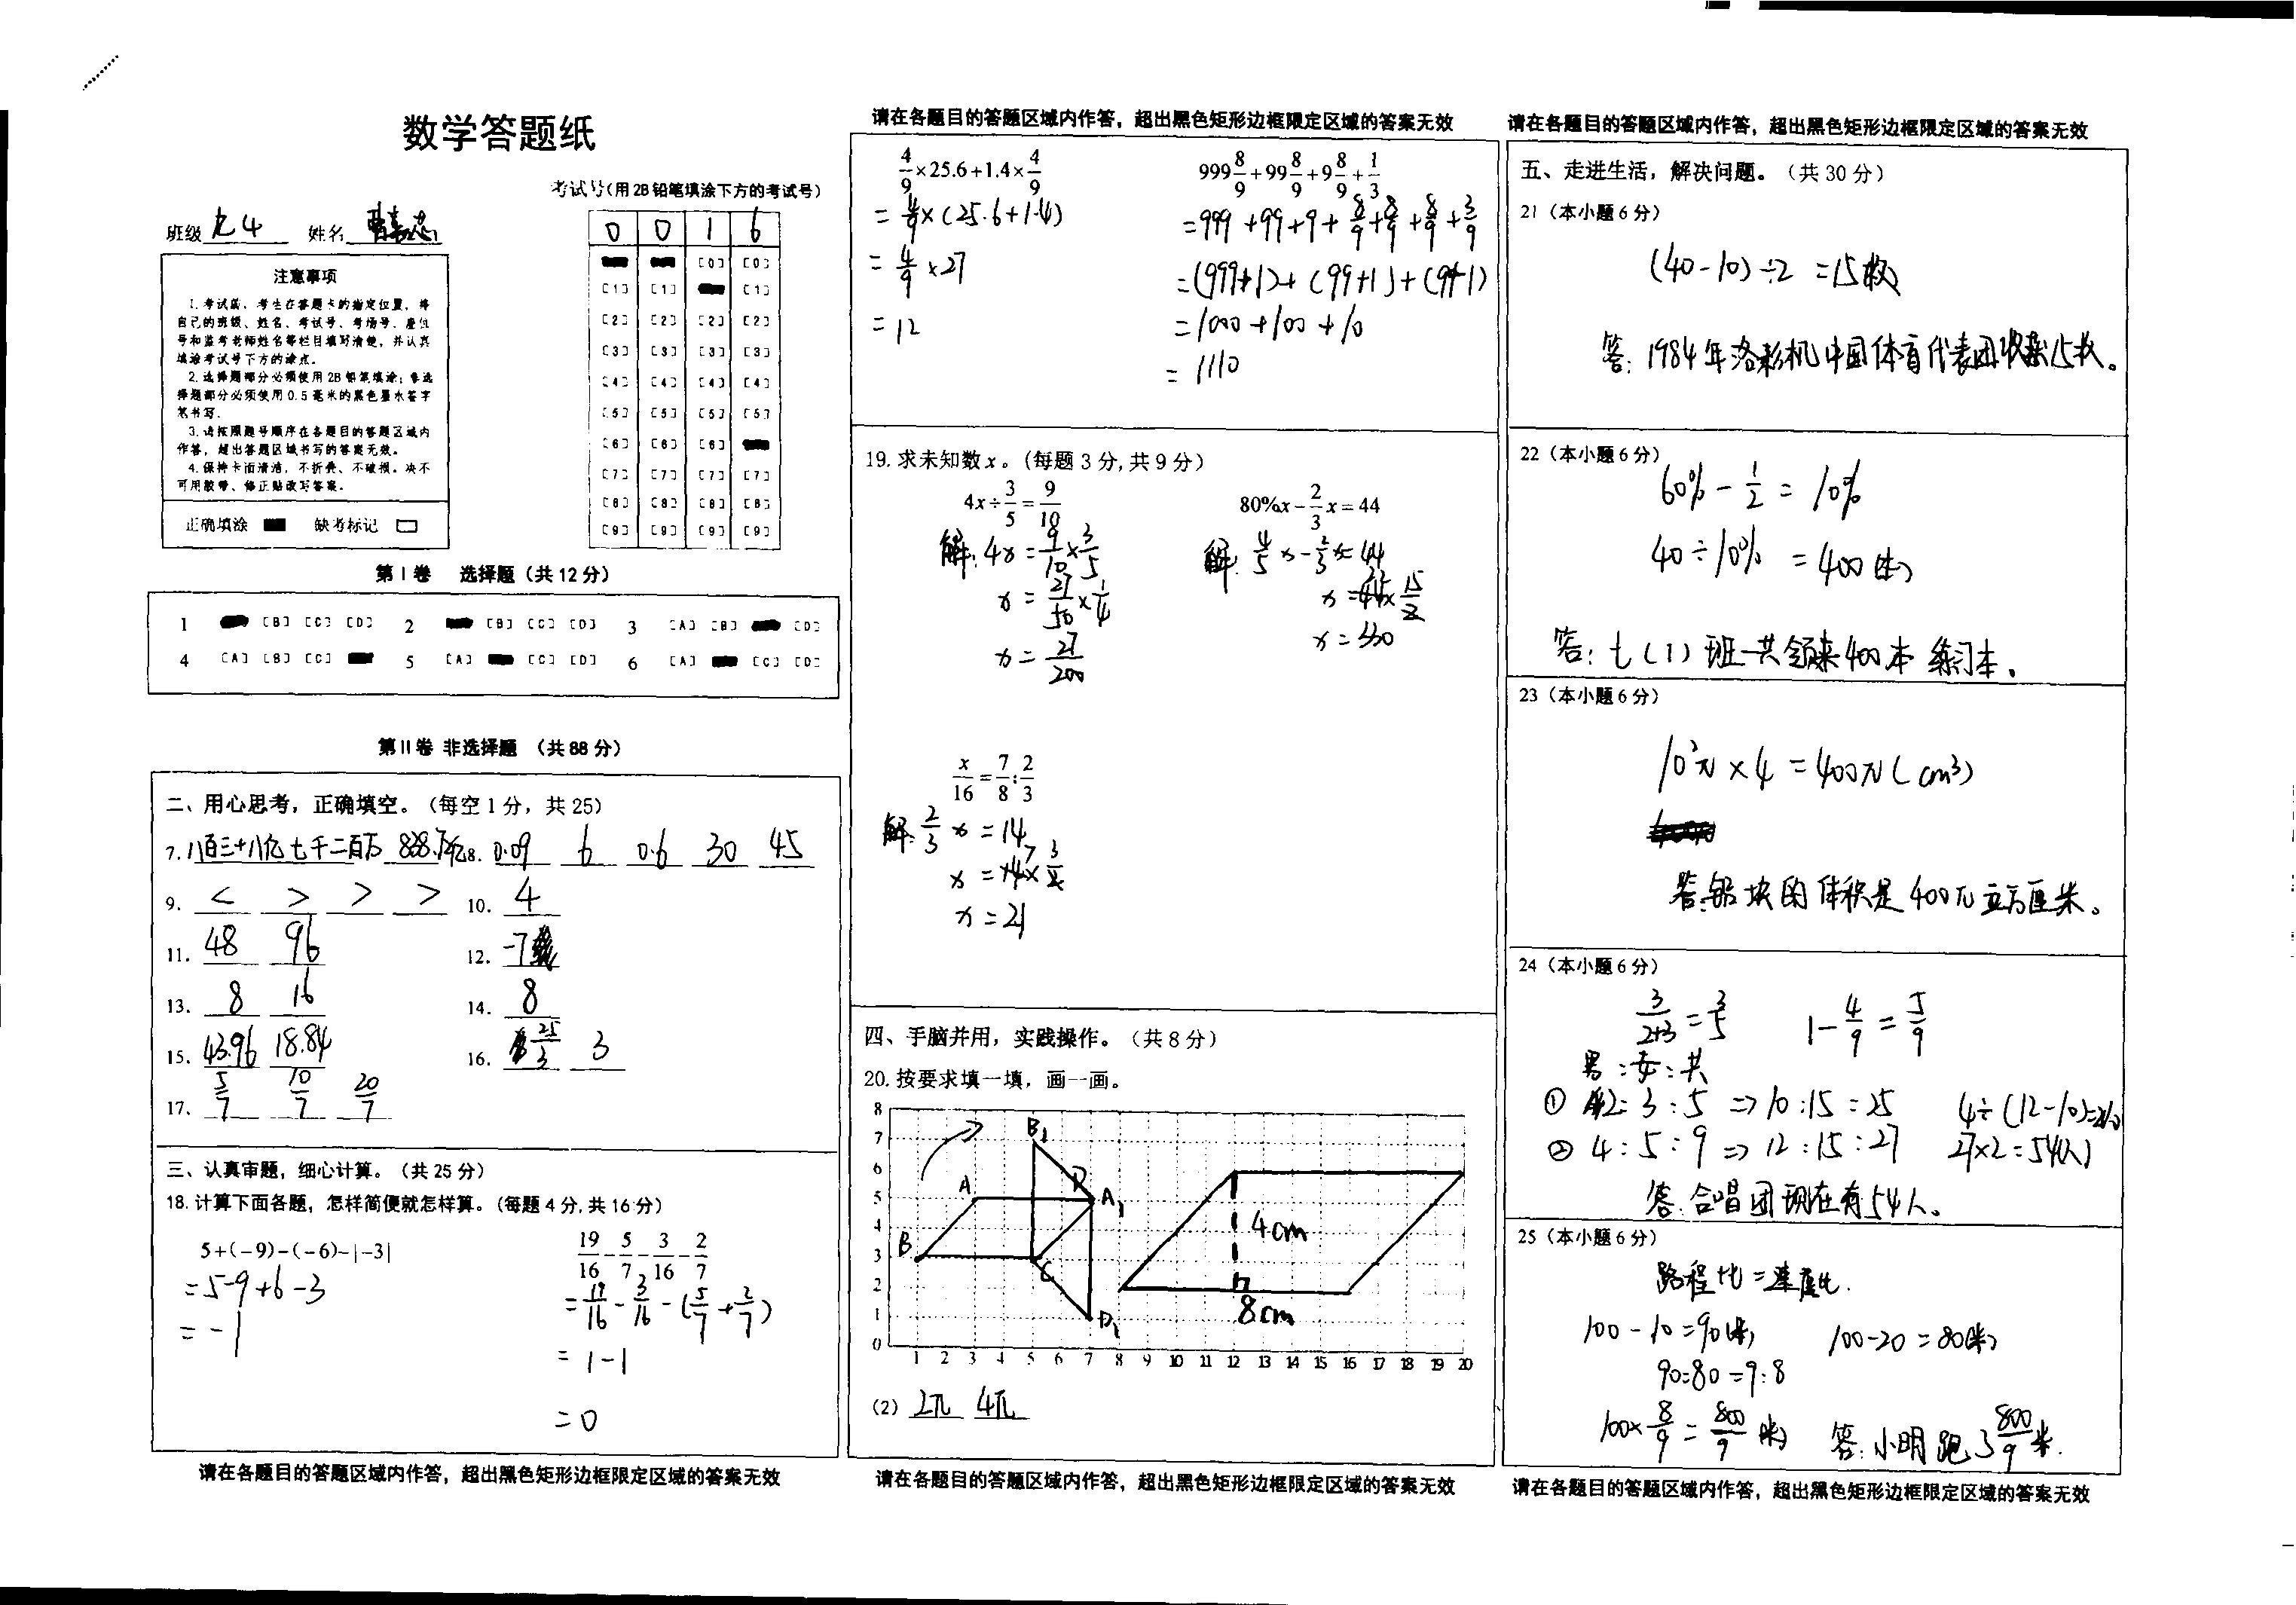 数学答题纸
考试号(用2B铅笔填涂下方的考试号)
班级 七4 姓名
0 0 1 6
注意事项
1.考试前，考生在答题卡的指定位置，将
自己的班级、姓名、考试号、考场号、座位
号和监考老师姓名等栏目填写清楚，并认真
填涂考试号下方的涂点。
2.选择题部分必须使用2B铅笔填涂；非选
择题部分必须使用0.5毫米的黑色墨水签字
笔书写.
3.请按照题号顺序在各题目的答题区域内
作答，超出答题区域书写的答案无效。
4.保持卡面清洁，不折叠、不破损。决不
可用胶带、修正贴改写答案。
正确填涂 缺考标记
[0] [0]
[1] [1] [1]
[2] [2] [2] [2]
[3] [3] [3] [3]
[4] [4] [4] [4]
[5] [5] [5] [5]
[6] [6] [6]
[7] [7] [7] [7]
[8] [8] [8] [8]
[9] [9] [9] [9]
第Ⅰ卷 选择题（共12分）
1 [B] [C] [D] 2 [B] [C] [D] 3 [A] [B] [D]
4 [A] [B] [C] 5 [A] [C] [D] 6 [A] [C] [D]
第Ⅱ卷 非选择题 （共88分）
二、用心思考，正确填空。（每空1分，共25）
7. 八百三十八亿七千二百万 8. 0.09 6 0.6 30 45
9. < > > > 10. 4
11. 48 96 12. -7
13. 8 16 14. 8
15. 43.96 18.84 16. 25/3 3
17. 5/7 10/7 20/7
三、认真审题，细心计算。（共25分）
18.计算下面各题，怎样简便就怎样算。（每题4分,共16分）
5+(−9)−(−6)−|−3|
=5-9+6-3
=-1
19/16-5/7-3/16-2/7
=19/16-3/16-(5/7+2/7)
=1-1
=0
请在各题目的答题区域内作答，超出黑色矩形边框限定区域的答案无效
请在各题目的答题区域内作答，超出黑色矩形边框限定区域的答案无效
4/9×25.6+1.4×4/9
=4/9×(25.6+1.4)
=4/9×27
=12
999 8/9+99 8/9+9 8/9+1/3
=999+99+9+8/9+8/9+8/9+3/9
=(999+1)+(99+1)+(9+1)
=1000+100+10
=1110
19.求未知数x。（每题3分,共9分）
4x÷3/5=9/10
解:4x=9/10×3/5
x=27/50×1/4
x=27/200
80%x-2/3x=44
解:4/5x-2/3x=44
x=44×15/2
x=330
x/16=7/8:2/3
解:2/3x=14
x=14×3/2
x=21
四、手脑并用，实践操作。（共8分）
20.按要求填一填，画一画。
8
7
6
5
4
3
2
1
0
B1
A D A1
B C
D1
4cm
8cm
1 2 3 4 5 6 7 8 9 10 11 12 13 14 15 16 17 18 19 20
（2） 2π 4π
请在各题目的答题区域内作答，超出黑色矩形边框限定区域的答案无效
请在各题目的答题区域内作答，超出黑色矩形边框限定区域的答案无效
五、走进生活，解决问题。（共30分）
21（本小题6分）
(40-10)÷2=15枚
答:1984年洛杉机中国体育代表团收获15枚。
22（本小题6分）
60%-1/2=10%
40÷10%=400(本)
答:七(1)班一共领来400本练习本。
23（本小题6分）
10²π×4=400π(cm³)
答:铅块的体积是400π立方厘米。
24（本小题6分）
3/2+3=3/5 1-4/9=5/9
男:女:共
① 2:3:5⇒10:15:25 4÷(12-10)=2(人)
② 4:5:9⇒12:15:27 27×2=54(人)
答:合唱团现在有54人。
25（本小题6分）
路程比=速度比.
100-10=90(米) 100-20=80(米)
90:80=9:8
100×8/9=800/9(米) 答:小明跑了800/9米.
请在各题目的答题区域内作答，超出黑色矩形边框限定区域的答案无效